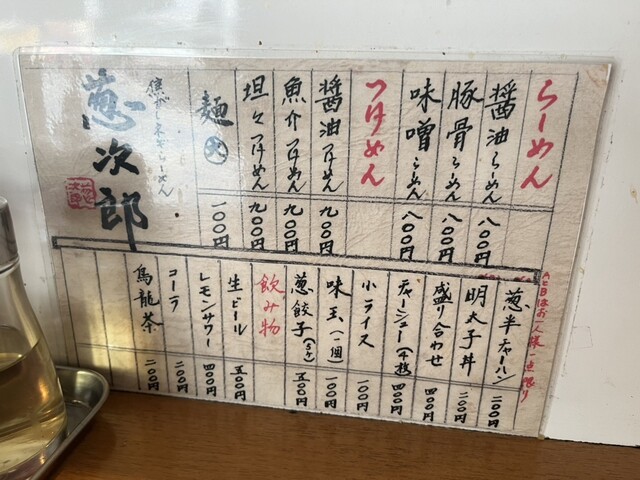 らーめん
醤油らーめん 八〇〇円
豚骨らーめん 八〇〇円
味噌らーめん 八〇〇円
つけめん
醤油つけめん 九〇〇円
魚介つけめん 九〇〇円
坦々つけめん 九〇〇円
麺大 一〇〇円
焦がしネギらーめん
葱次郎
AとBはお一人様一点限り
葱半チャーハン 二〇〇円
明太子丼 二〇〇円
盛り合わせ 四〇〇円
チャーシュー(4枚) 四〇〇円
小ライス 一〇〇円
味玉(一個) 一〇〇円
葱餃子(5ケ) 五〇〇円
飲み物
生ビール 五〇〇円
レモンサワー 四〇〇円
コーラ 二〇〇円
烏龍茶 二〇〇円